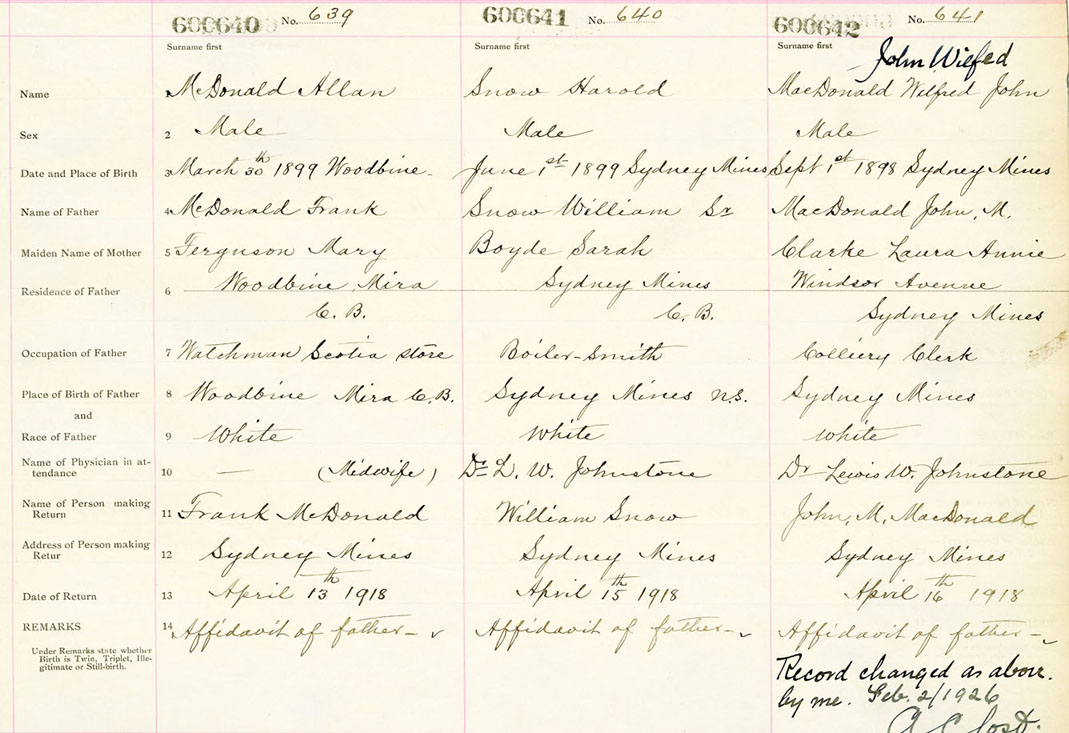 600640 No. 639 600641 No. 640 600642 No. 641
Surname first Surname first Surname first
John Wilfed
Name McDonald Allan Snow Harold MacDonald Wilfred John
Sex 2 Male Male Male
Date and Place of Birth 3 March 30th 1899 Woodbine June 1st 1899 Sydney Mines Sept 1st 1898 Sydney Mines
Name of Father 4 McDonald Frank Snow William Sr MacDonald John, M.
Maiden Name of Mother 5 Ferguson Mary Boyde Sarah Clarke Laura Annie
Residence of Father 6 Woodbine Mira Sydney Mines Windsor Avenue
C.B. C.B. Sydney Mines
Occupation of Father 7 Watchman Scotia store Boiler-Smith Colliery Clerk
Place of Birth of Father 8 Woodbine Mira C.B. Sydney Mines N.S. Sydney Mines
and
Race of Father 9 White White White
Name of Physician in at-
tendance 10 — (Midwife) Dr L. W. Johnstone Dr Lewis W. Johnstone
Name of Person making
Return 11 Frank McDonald William Snow John, M, MacDonald
Address of Person making
Retur 12 Sydney Mines Sydney Mines Sydney Mines
Date of Return 13 April 13th 1918 April 15th 1918 April 16th 1918
REMARKS 14 Affidavit of father- Affidavit of father- Affidavit of father-
Under Remarks state whether
Birth is Twin, Triplet, Ille-
gitimate or Still-birth.
Record changed as above.
by me. Feb. 2/1926